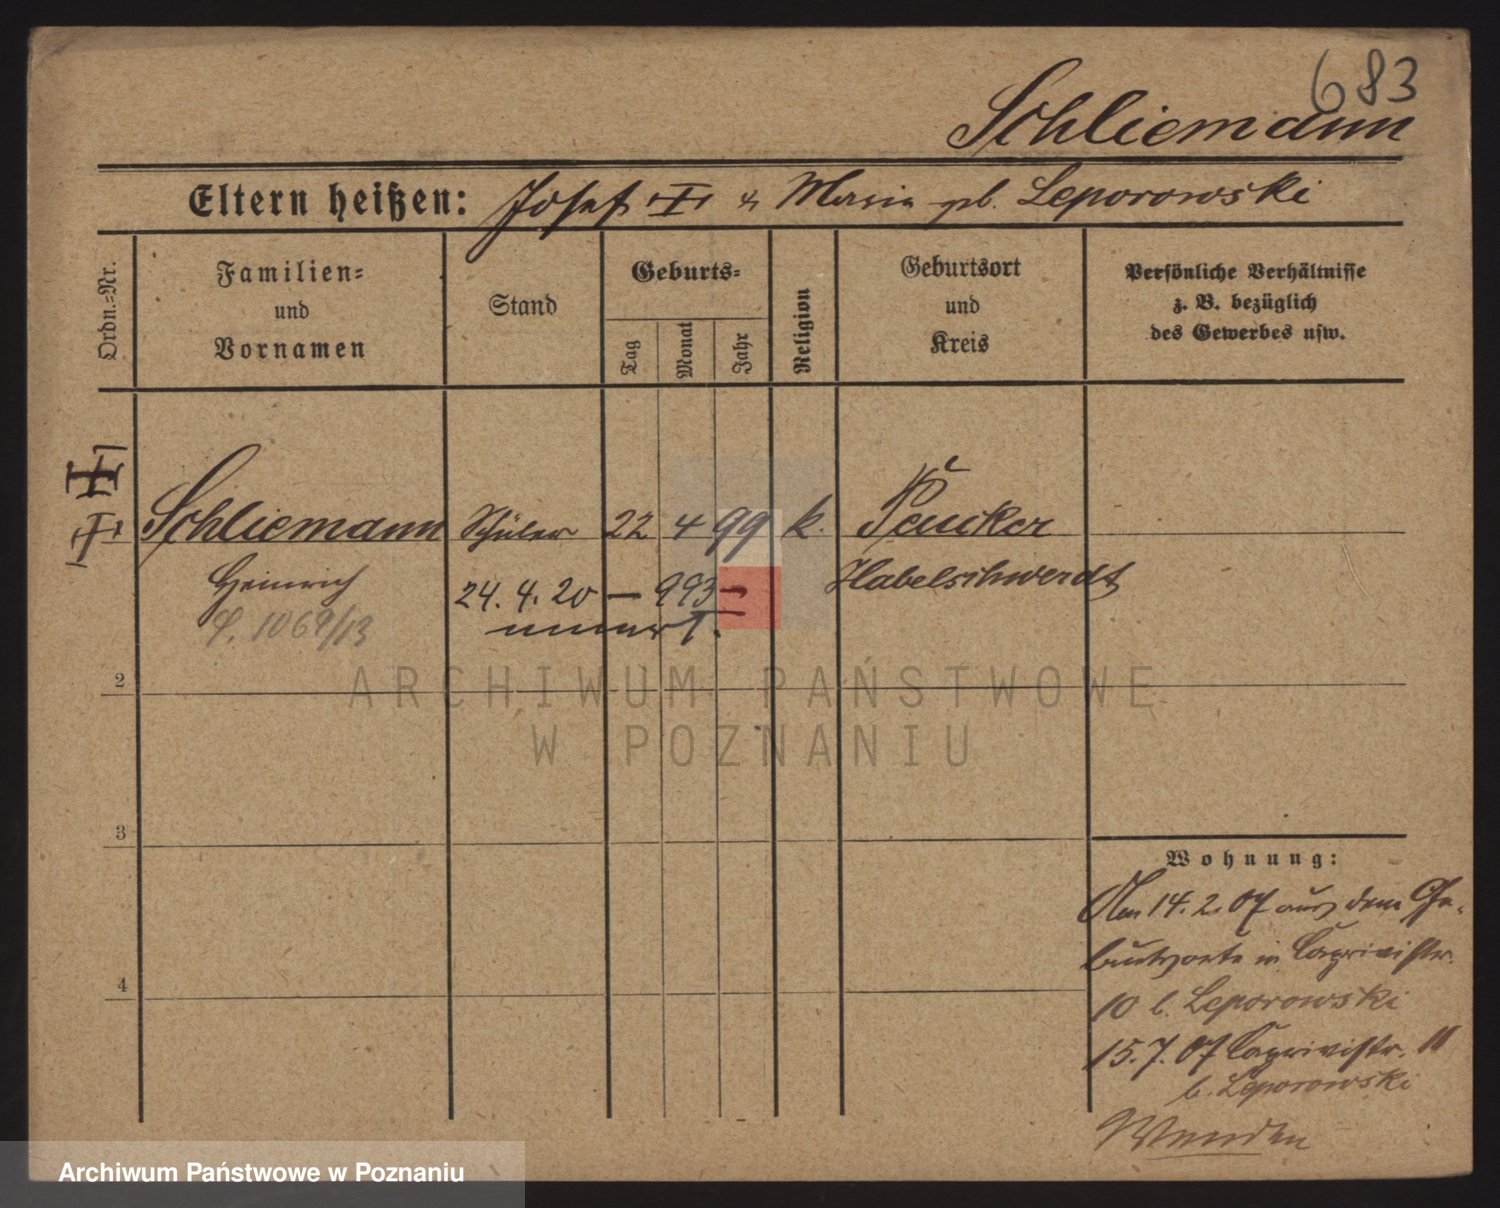 683
Schliemann
Eltern heißen: Josef & Maria gb. Leporowski
Ordn.-Nr.
Familien-
und
Vornamen
Stand
Geburts-
Tag
Monat
Jahr
Religion
Geburtsort
und
Kreis
Persönliche Verhältnisse
z. B. bezüglich
des Gewerbes usw.
Schliemann Schüler 22 4 99 k. Peucker
Heinrich 24. 4. 20 — 993 — Habelschwerdt
1069/13
2
ARCHIWUM PAŃSTWOWE
W POZNANIU
3
Wohnung:
Am 14. 2. 07 aus dem Ge-
burtsorte in Caprivistr.
10 b. Leporowski
4
15. 7. 07 Caprivistr. 11
b. Leporowski
Wenden
Archiwum Państwowe w Poznaniu